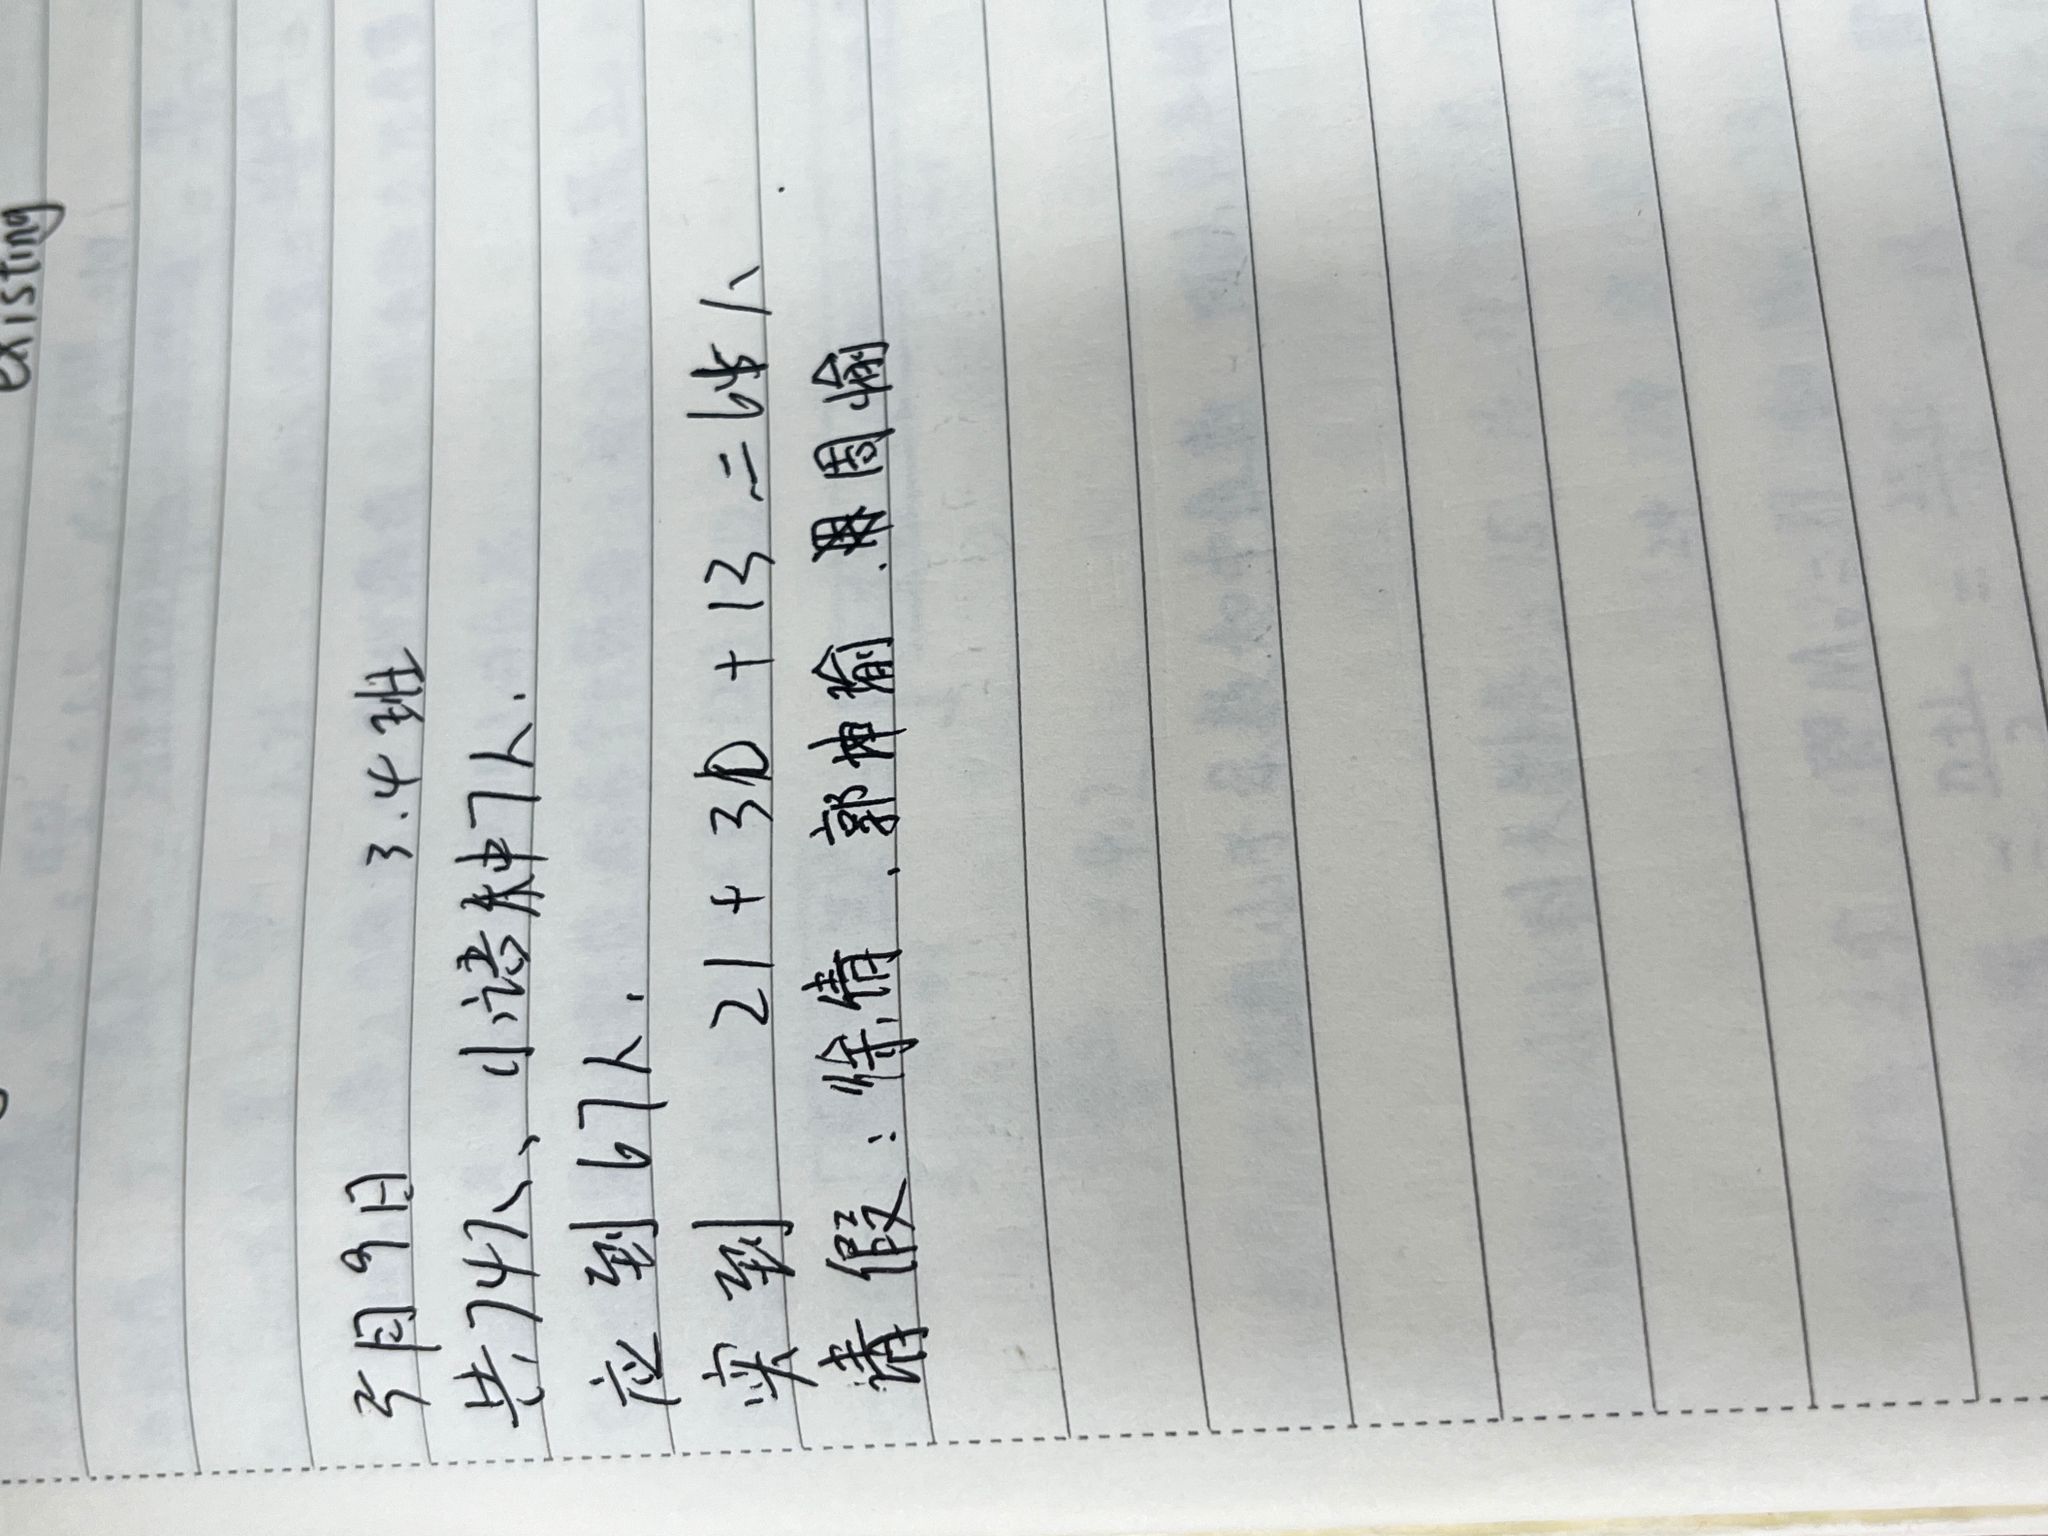 existing
5月9日 3.4班
共74人、小语种7人.
应到67人.
实到 21+30+13=64人
请假:徐倩.郭坤瑜.周愉